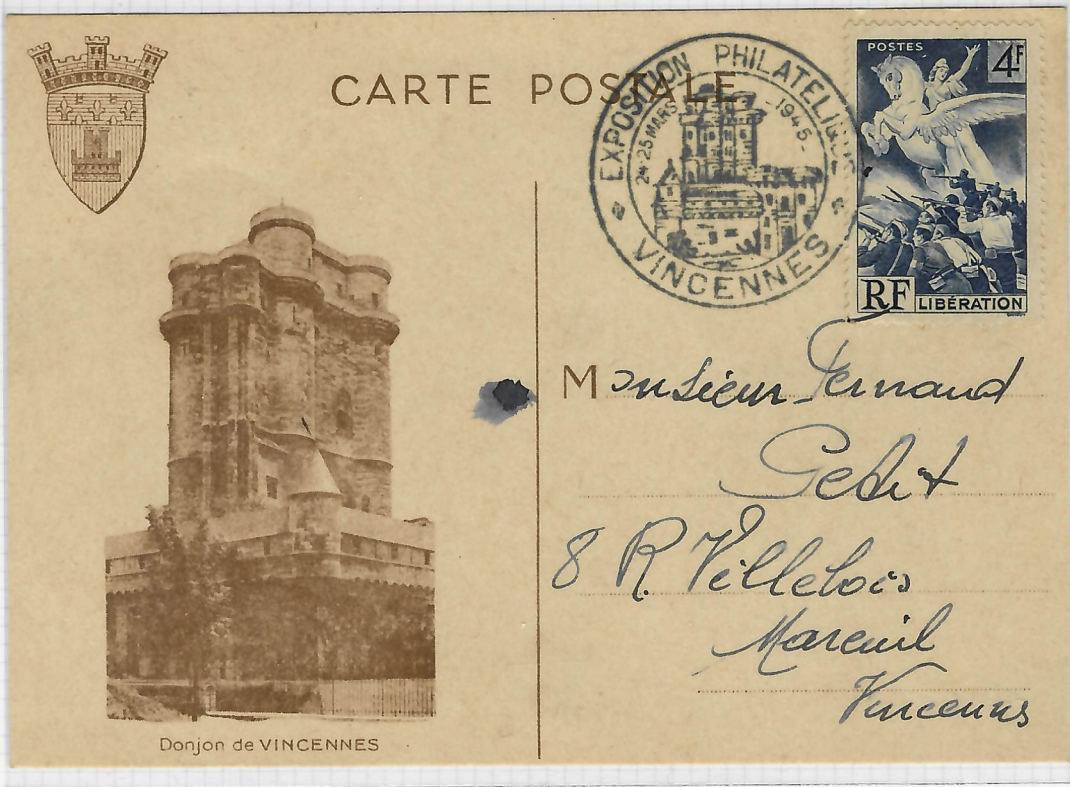 CARTE POSTALE
EXPOSITION PHILATELIQUE
24-25 MARS -1945-
VINCENNES
POSTES
4F
RF LIBÉRATION
Monsieur Fernand
8 R. Villebois
Mareuil
Vincennes
Donjon de VINCENNES